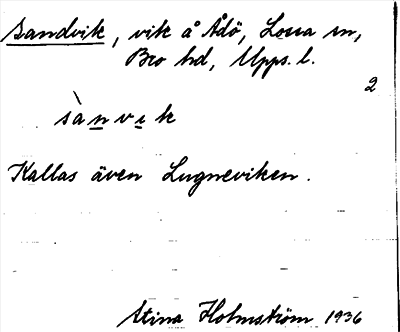 Sandvik, vik å Ådö, Lossa sn,
Bro hd, Upps. l.
2
sànvik
Kallas även Lugneviken.
Stina Holmström 1936